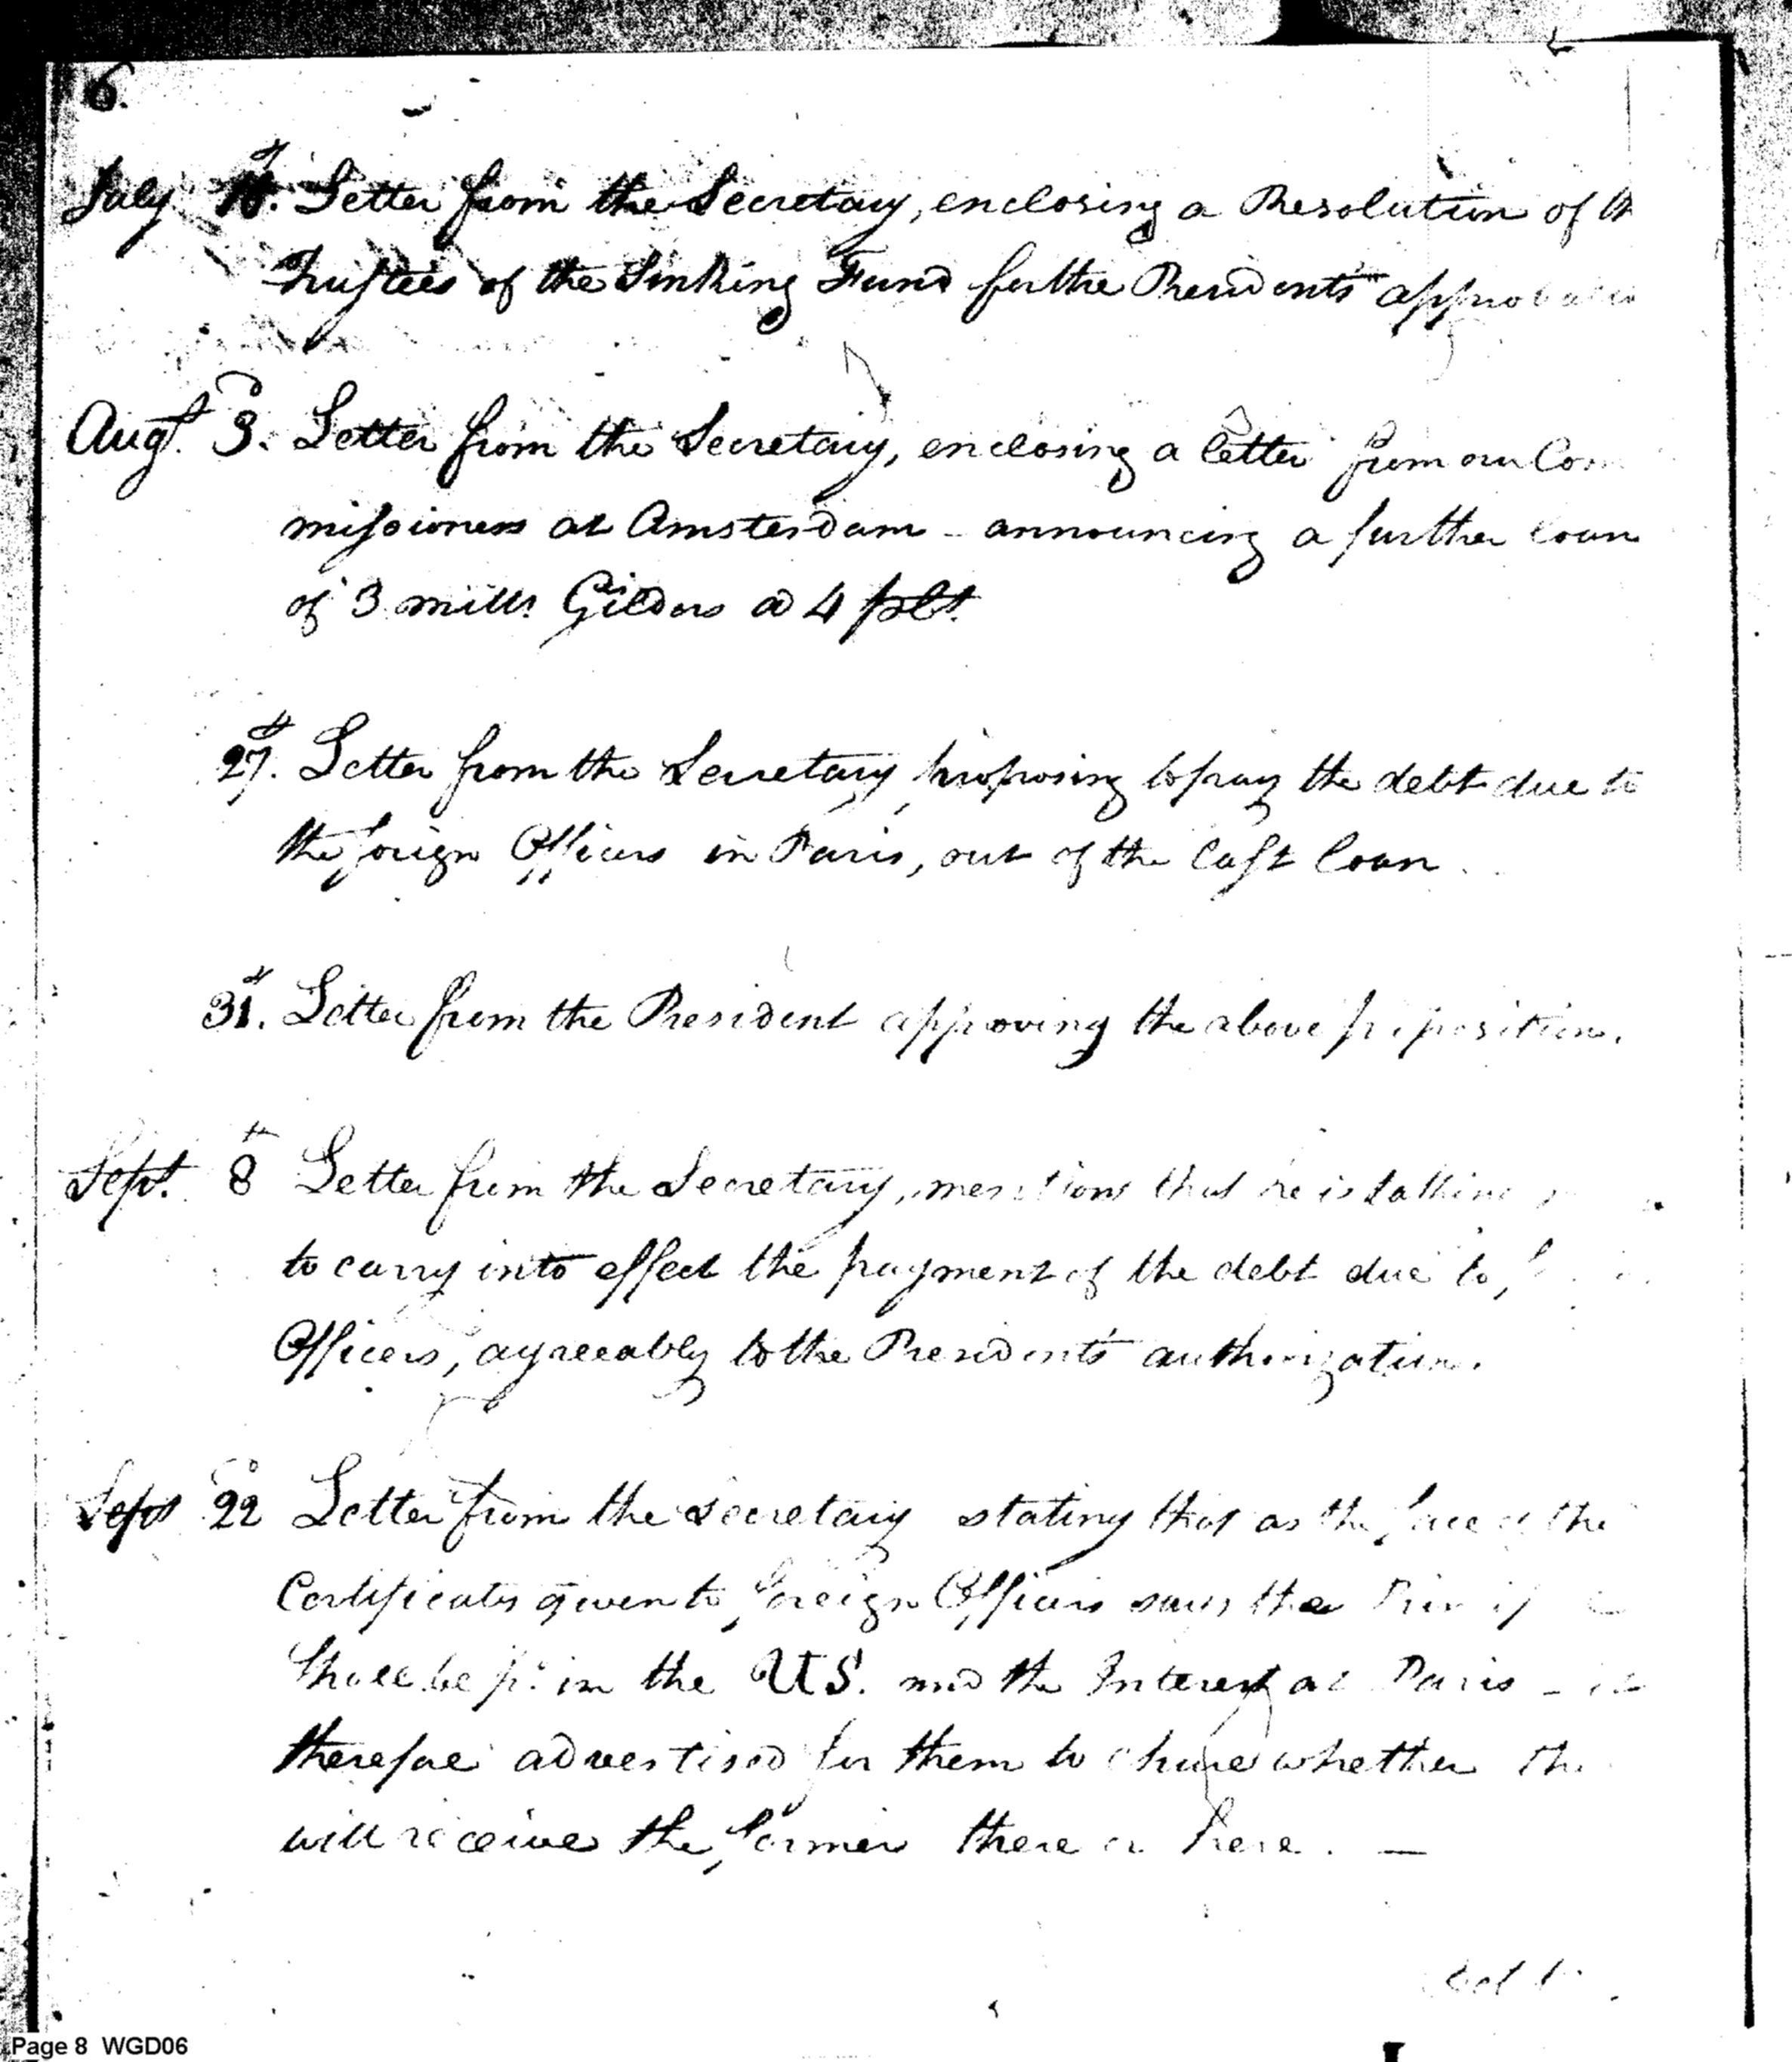 6.
July Letter from the Secretary, enclosing a Resolution of
Trustees of the Sinking Fund for the President's approbatio
Augt. 3. Letter from the Secretary, enclosing a letter from our Com
missioners at Amsterdam - announcing a further loan
of 3 mills. Gilders @ 4 pCt.
27. Letter from the Secretary proposing to pay the debt due to
the foreign Officers in Paris, out of the last loan.
31. Letter from the President approving the above proposition.
Sept. 8th Letter from the Secretary, mentions that he is taking
to carry into effect the payment of the debt due to
Officers, agreeably to the President's authorization.
Sept 22 Letter from the Secretary stating that as the face of the
Certificates given to foreign Officers says the
shall be pd. in the US. and the Interest at Paris -
therefore advertised for them to chuse whether
will receive the former there or here. —
Page 8 WGD06